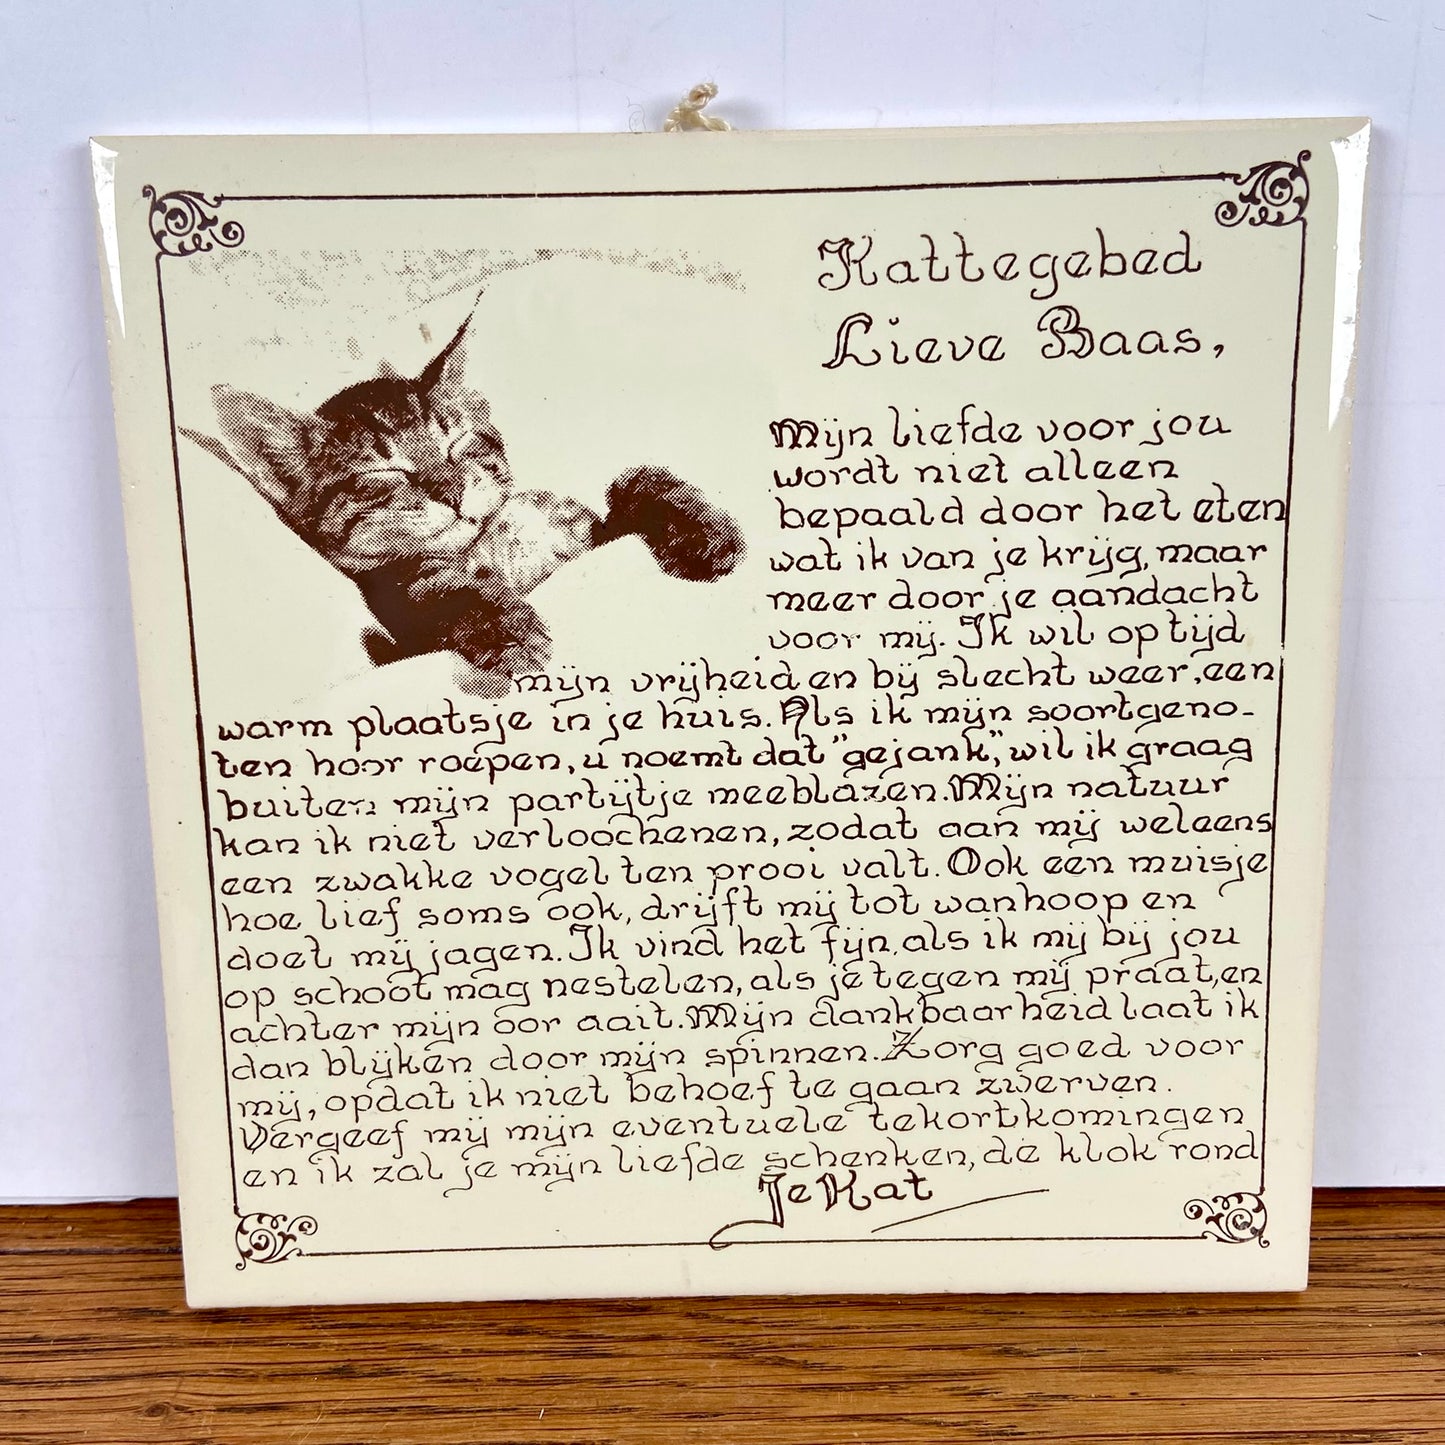 Kattegebed
Lieve Baas,
Mijn liefde voor jou
wordt niet alleen
bepaald door het eten
wat ik van je krijg, maar
meer door je aandacht
voor mij. Ik wil op tijd
mijn vrijheid en bij slecht weer, een
warm plaatsje in je huis. Als ik mijn soortgeno-
ten hoor roepen, u noemt dat "gejank", wil ik graag
buiten mijn partijtje meeblazen. Mijn natuur
kan ik niet verloochenen, zodat aan mij weleens
een zwakke vogel ten prooi valt. Ook een muisje
hoe lief soms ook, drijft mij tot wanhoop en
doet mij jagen. Ik vind het fijn, als ik mij bij jou
op schoot mag nestelen, als je tegen mij praat, en
achter mijn oor aait. Mijn dankbaarheid laat ik
dan blijken door mijn spinnen. Zorg goed voor
mij, opdat ik niet behoef te gaan zwerven.
Vergeef mij mijn eventuele tekortkomingen
en ik zal je mijn liefde schenken, de klok rond
Je Kat